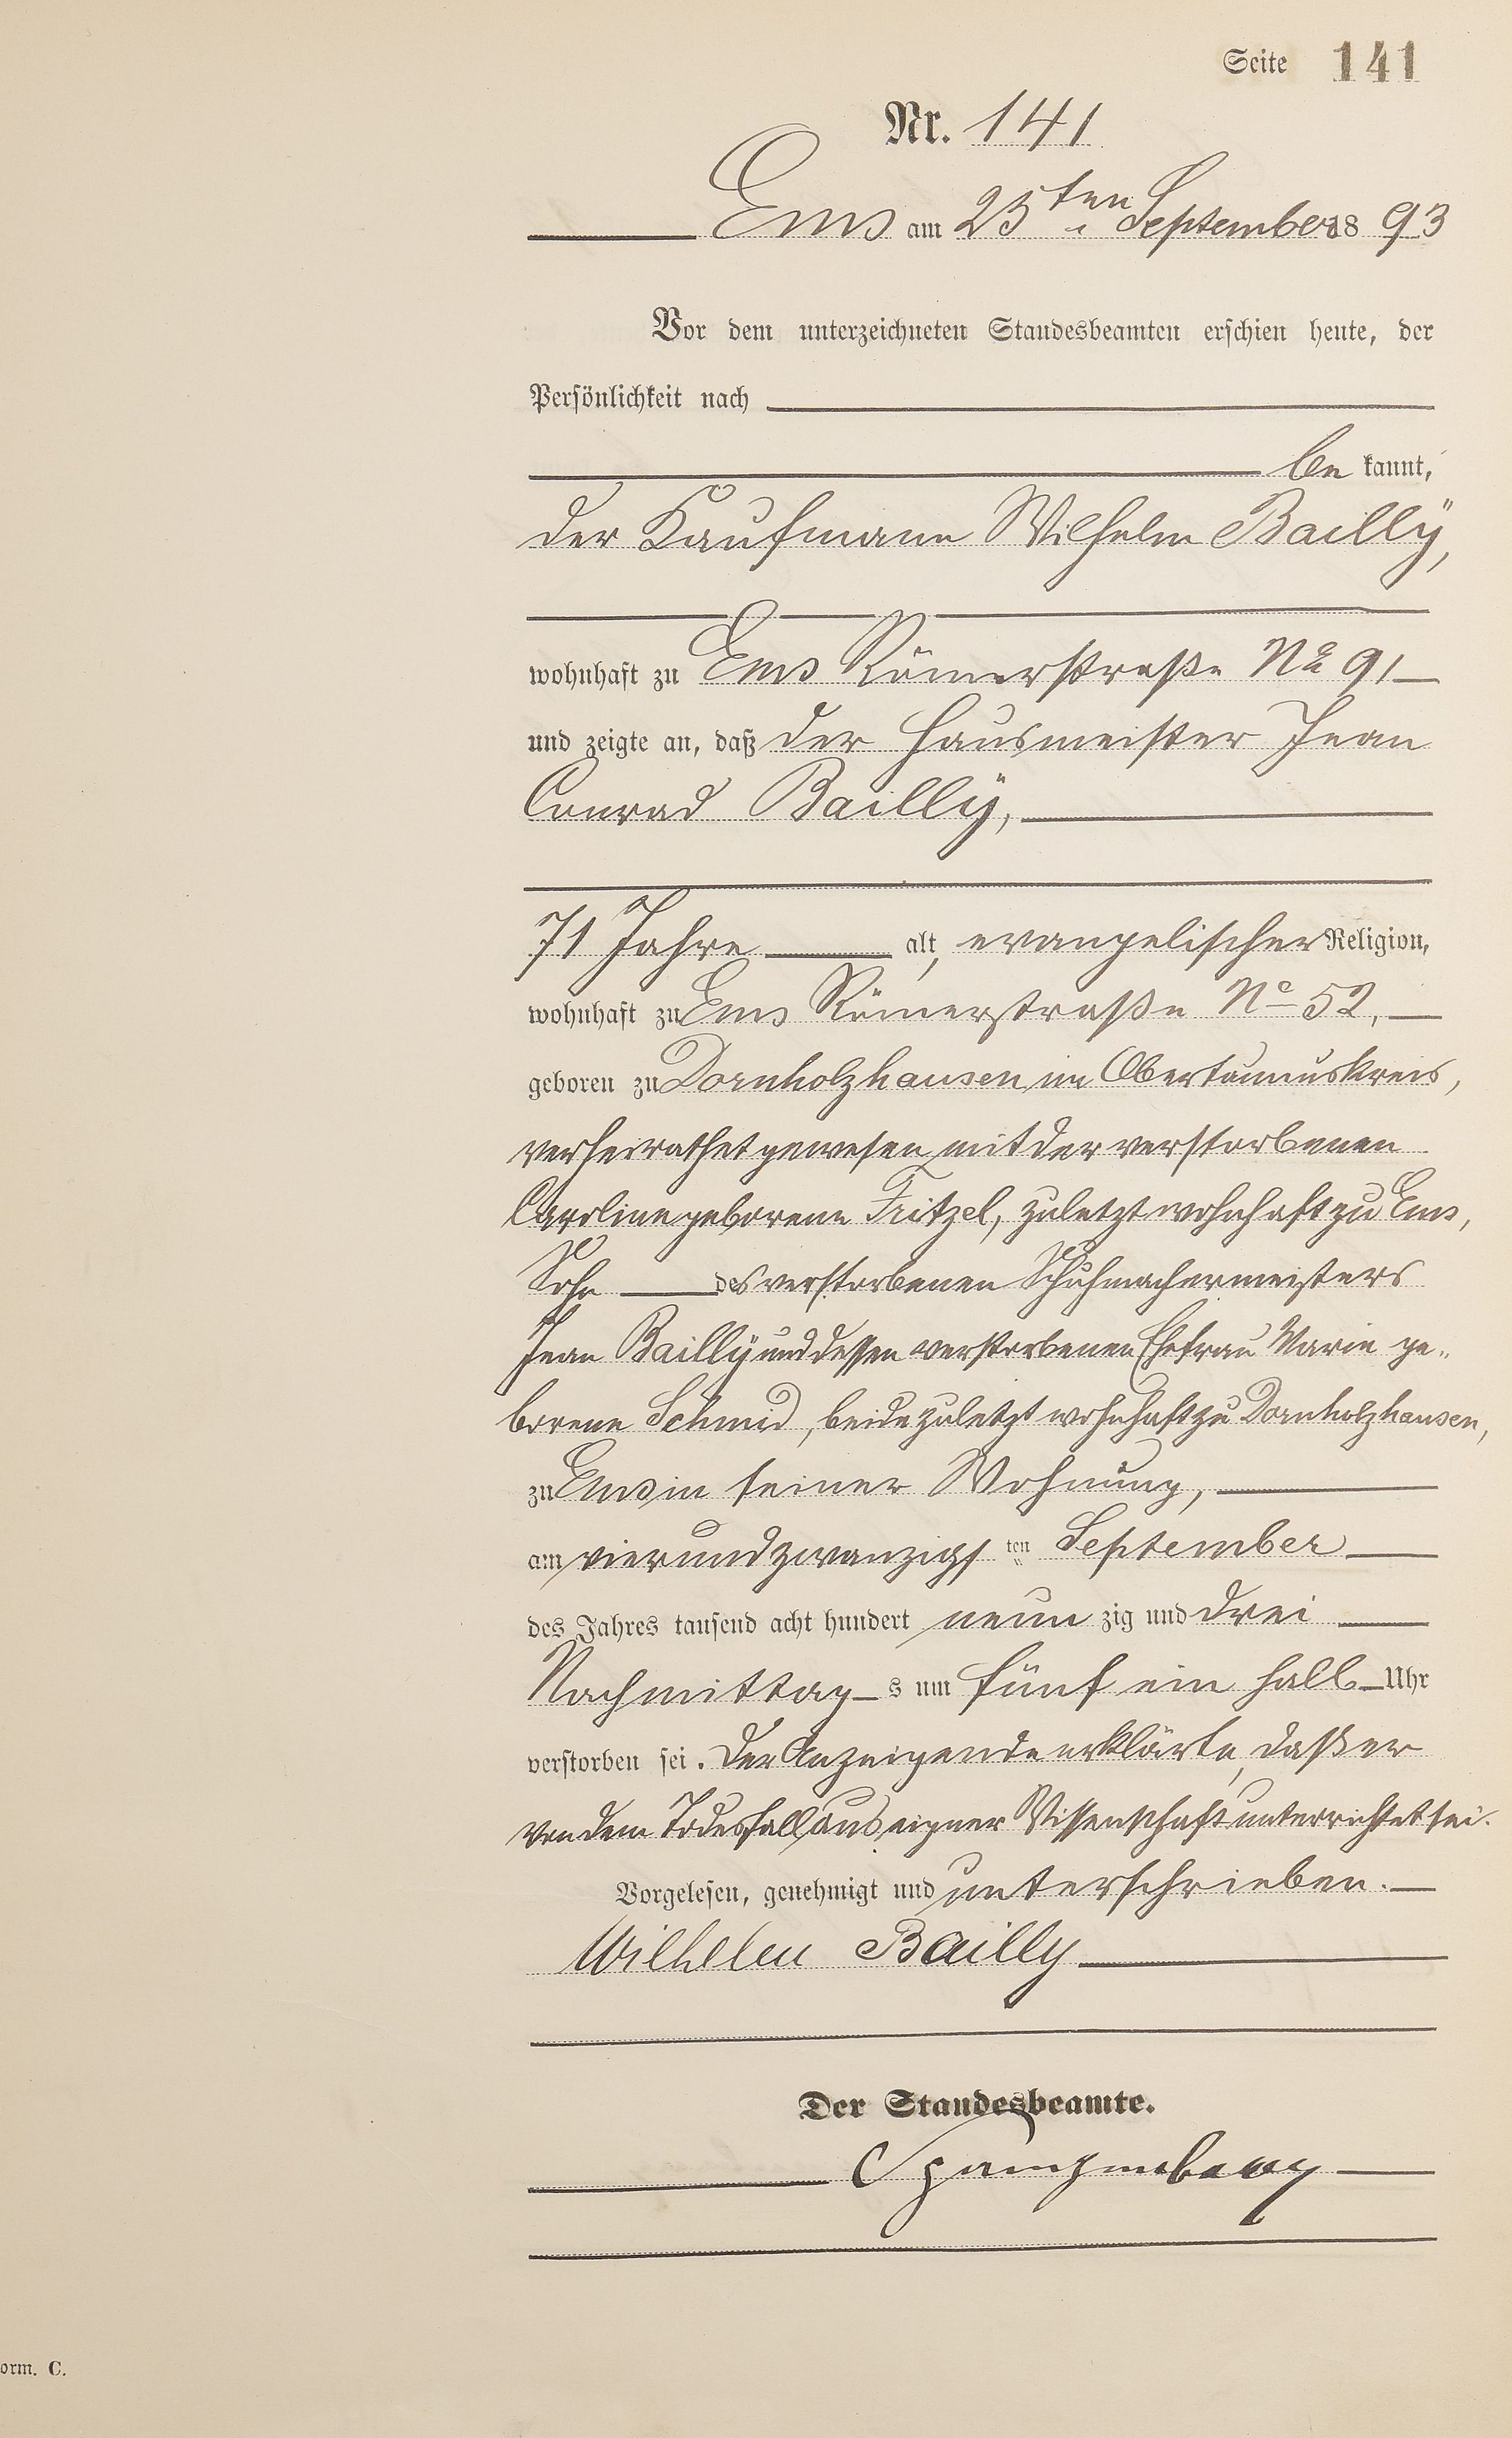 Seite 141
Nr. 141
Ems am 25ten September 1893
Vor dem unterzeichneten Standesbeamten erschien heute, der
Persönlichkeit nach
bekannt,
der Kaufmann Wilhelm Bailly,
wohnhaft zu Ems Römerstraße No 91
und zeigte an, daß der Hausmeister Jean
Conrad Bailly,
71 Jahre alt, evangelischer Religion,
wohnhaft zu Ems Römerstraße No 52,
geboren zu Dornholzhausen im Obertaunuskreis,
verheirathet gewesen mit der verstorbenen
Caroline geborene Fritzel, zuletzt wohnhaft zu Ems,
Sohn des verstorbenen Schuhmachermeisters
Jean Bailly und dessen verstorbenen Ehefrau Marie ge-
borene Schmid, beide zuletzt wohnhaft zu Dornholzhausen,
zu Ems in seiner Wohnung,
am vierundzwanzigsten September
des Jahres tausend acht hundert neunzig und drei
Nachmittags um fünf ein halb Uhr
verstorben sei. Der Anzeigende erklärte, daß er
von dem Todesfall aus eigner Wissenschaft unterrichtet sei.
Vorgelesen, genehmigt und unterschrieben.
Wilhelm Bailly
Der Standesbeamte.
Spangenberg
orm. C.